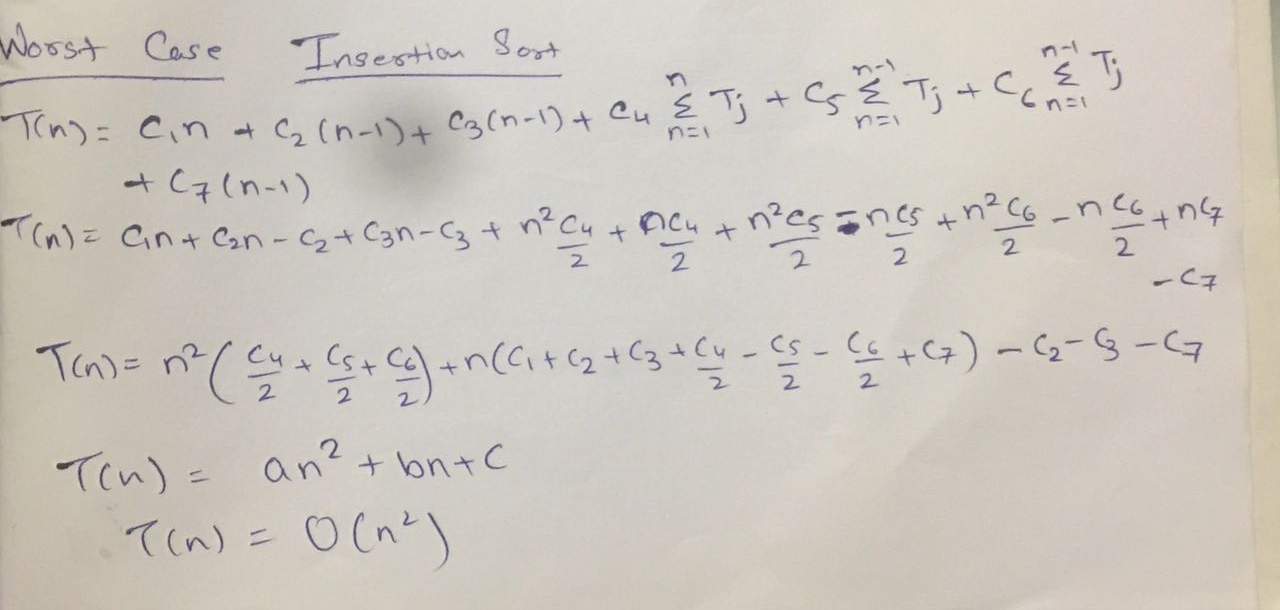 Worst Case Insertion Sort
T(n) = C₁n + C₂(n-1) + C₃(n-1) + C₄ Σ_{n=1}^{n} Tj + C₅ Σ_{n=1}^{n-1} Tj + C₆ Σ_{n=1}^{n-1} Tj
+ C₇(n-1)
T(n) = C₁n + C₂n - C₂ + C₃n - C₃ + n²C₄/2 + nC₄/2 + n²C₅/2 - nC₅/2 + n²C₆/2 - nC₆/2 + nC₇
- C₇
T(n) = n²(C₄/2 + C₅/2 + C₆/2) + n(C₁ + C₂ + C₃ + C₄/2 - C₅/2 - C₆/2 + C₇) - C₂ - C₃ - C₇
T(n) = an² + bn + C
T(n) = O(n²)